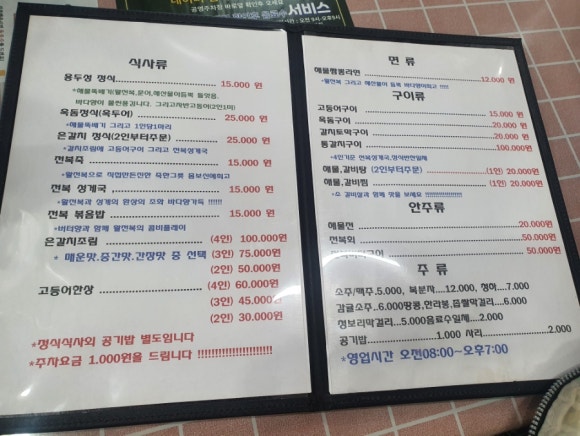 서비스
식사류
용두성 정식 15.000 원
*해물뚝배기(딸전복,문어,해산물이듬뿍 들었음.
바다향이 물씬풍깁니다. 그리고자반고등어(2인1마)
옥돔정식(옥두어) 25.000 원
*해물뚝배기 그리고 1인당1마리
은갈치 정식(2인부터주문) 25.000 원
*갈치조림에 고등어구이 그리고 전복성게국
전복죽 15.000 원
*딸전복으로 직접만든진한 죽한그릇 몸보신에최고
전복 성게국 15.000 원
*딸전복과 성게의 환상의 조화 바다향가득 !!!!!!
전복 볶음밥 15.000 원
*버터향과 함께 딸전복의 콤비플레이
은갈치조림 (4인) 100.000원
*매운맛.중간맛.간장맛 중 선택 (3인) 75.000원
(2인) 50.000원
고등어한상 (4인) 60.000원
(3인) 45.000원
(2인) 30.000원
*정식식사외 공기밥 별도입니다
*주차요금 1.000원을 드립니다 !!!!!!!!!!!!!!!!!!!!
면 류
해물짬뽕라면 12.000 원
*딸전복 그리고 해산물이 듬뿍 바다향이최고 !!!!
구이류
고등어구이 15.000 원
옥돔구이 20.000 원
갈치토막구이 20.000 원
통갈치구이 100.000원
*4인기준 전복성게국,정식반찬일체
해물,갈비탕 (2인부터주문) (1인) 20.000원
해물,갈비찜 (1인) 20.000원
안주류
해물전 20.000원
전복회 50.000원
50.000원
주 류
소주/맥주.5.000, 복분자....12.000, 청하...7.000
감귤소주..6.000땅콩,한라봉,톱쌀막걸리...6.000
청보리막걸리...5.000음료수일체...2.000
공기밥 1.000 사리 2.000
*영업시간 오전08:00~오후7:00